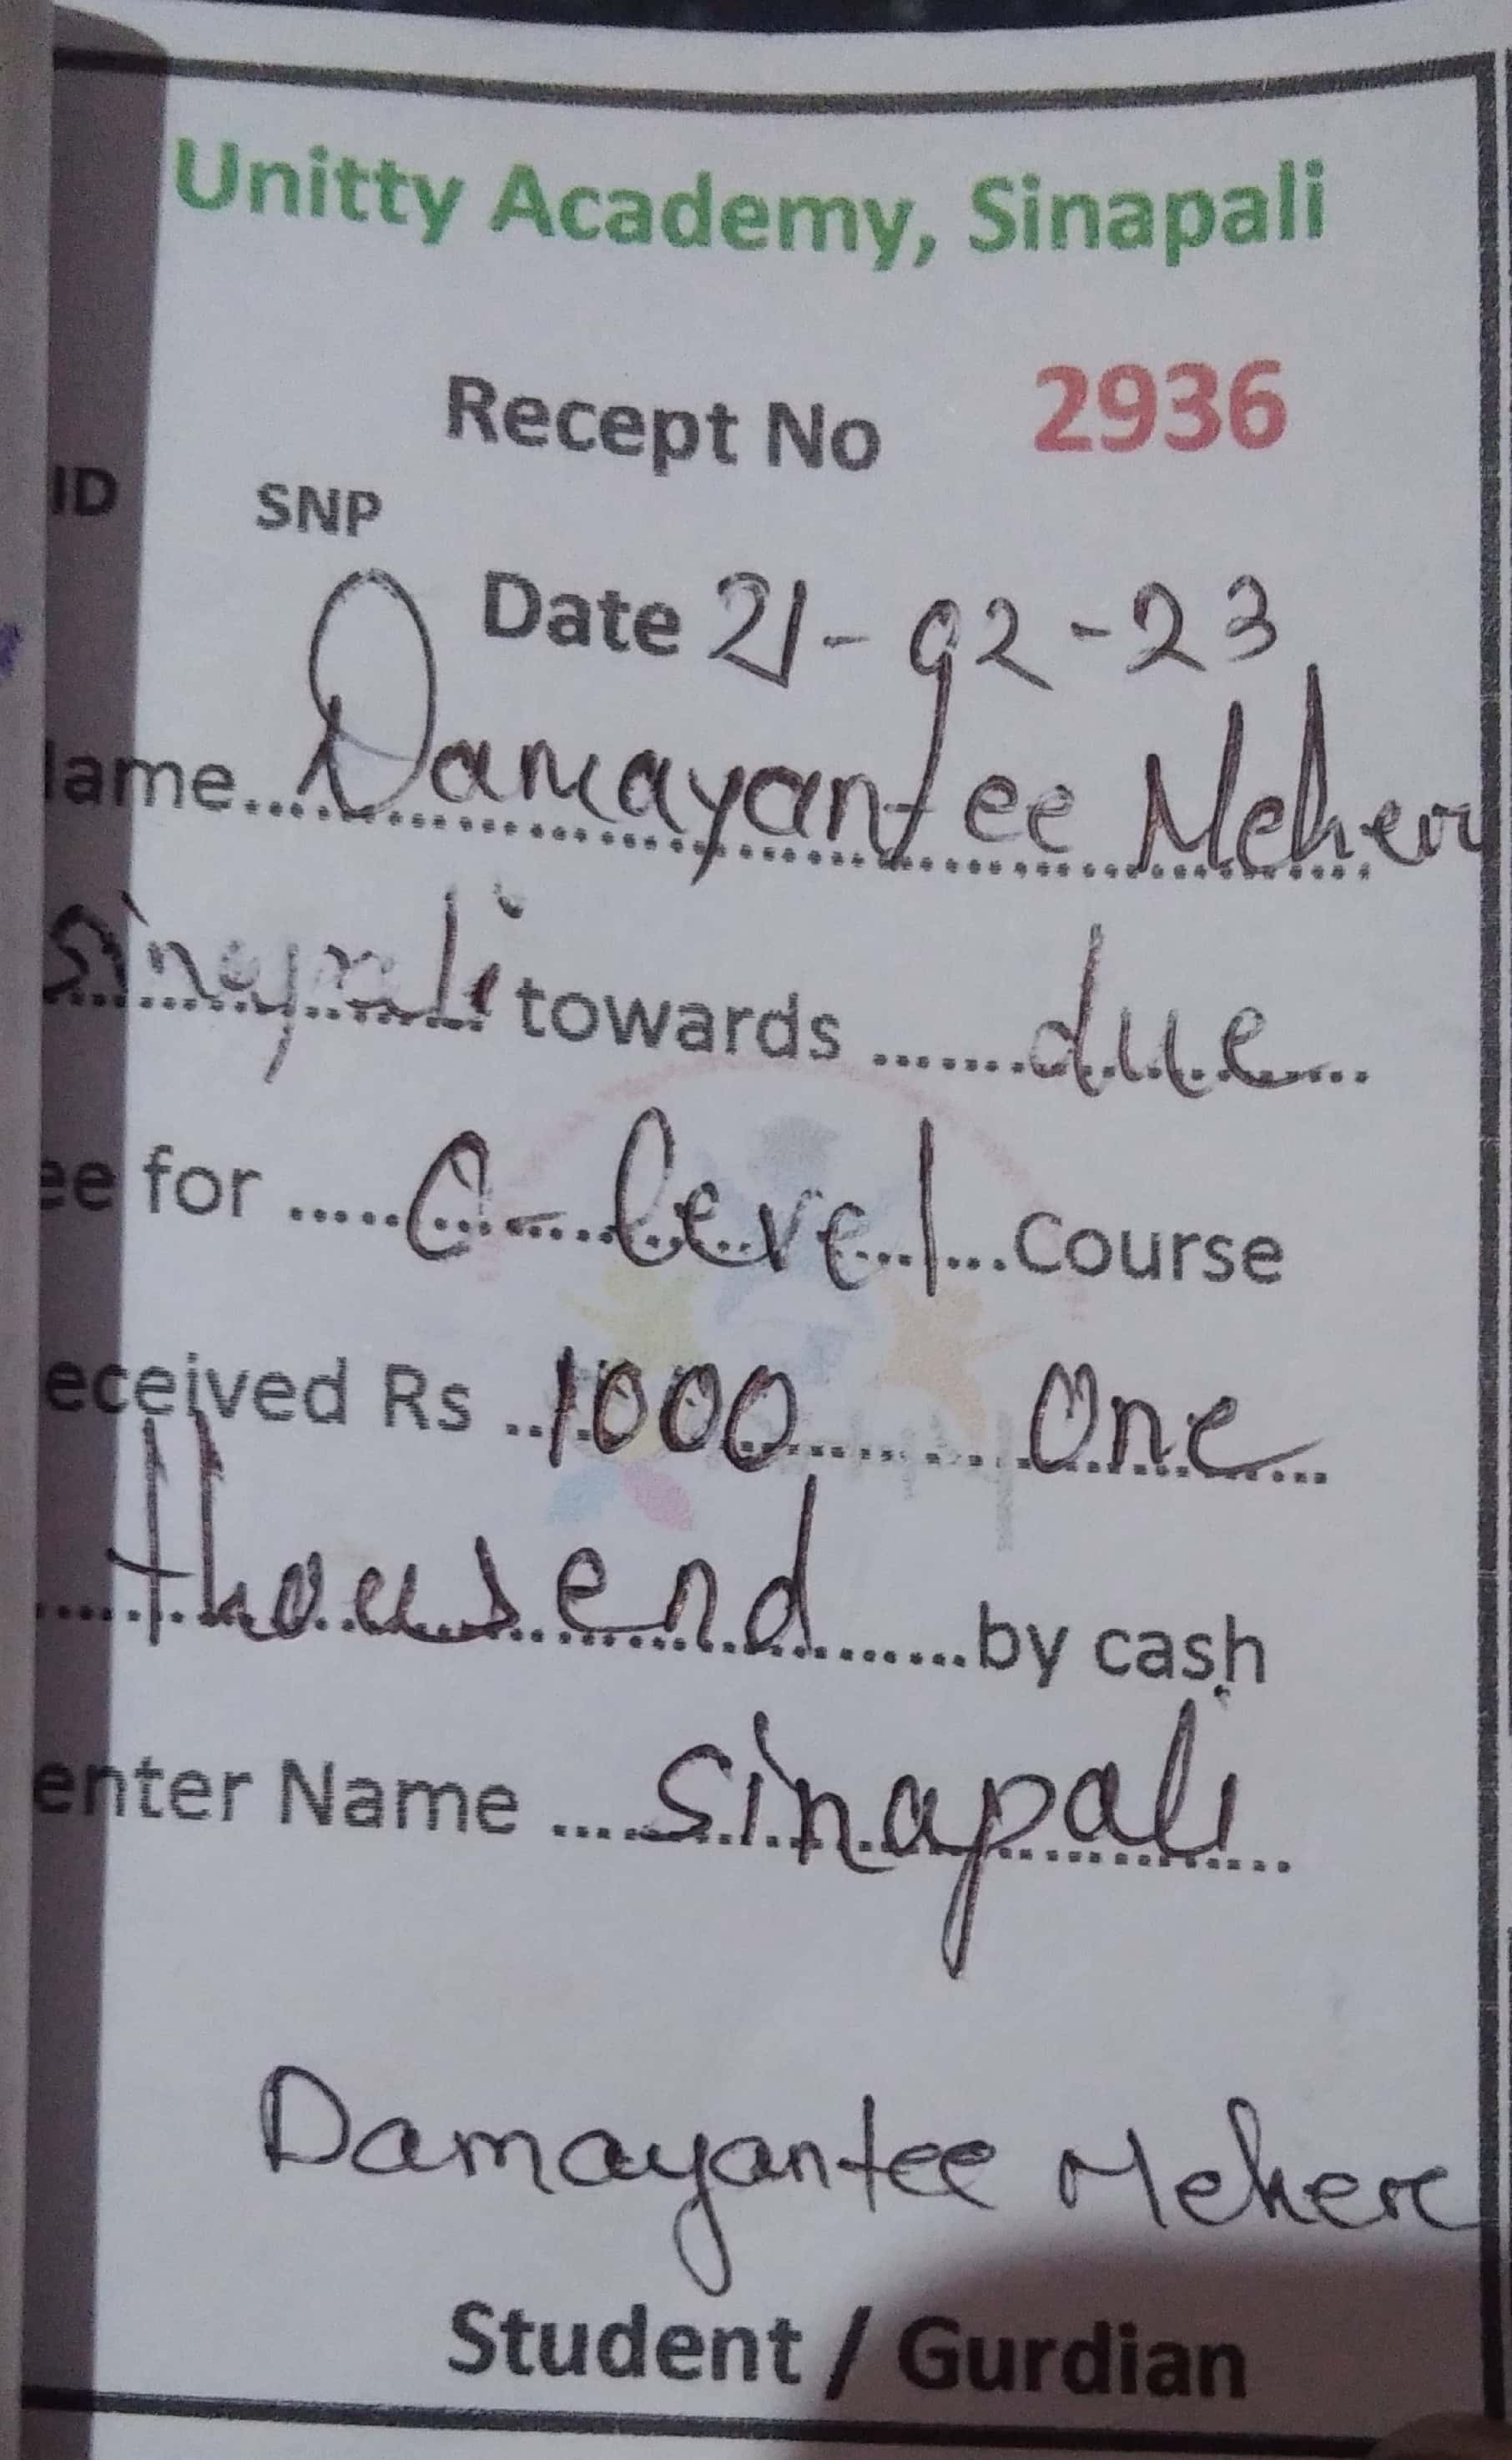 Unitty Academy, Sinapali
Recept No 2936
ID SNP
Date 21-02-23
ame....Damayantee Meher
Sinapali towards .......due....
ee for .....C-level...Course
eceived Rs ..1000.......... One...
.....thousend.......by cash
enter Name ....Sinapali...
Damayantee Meher
Student / Gurdian